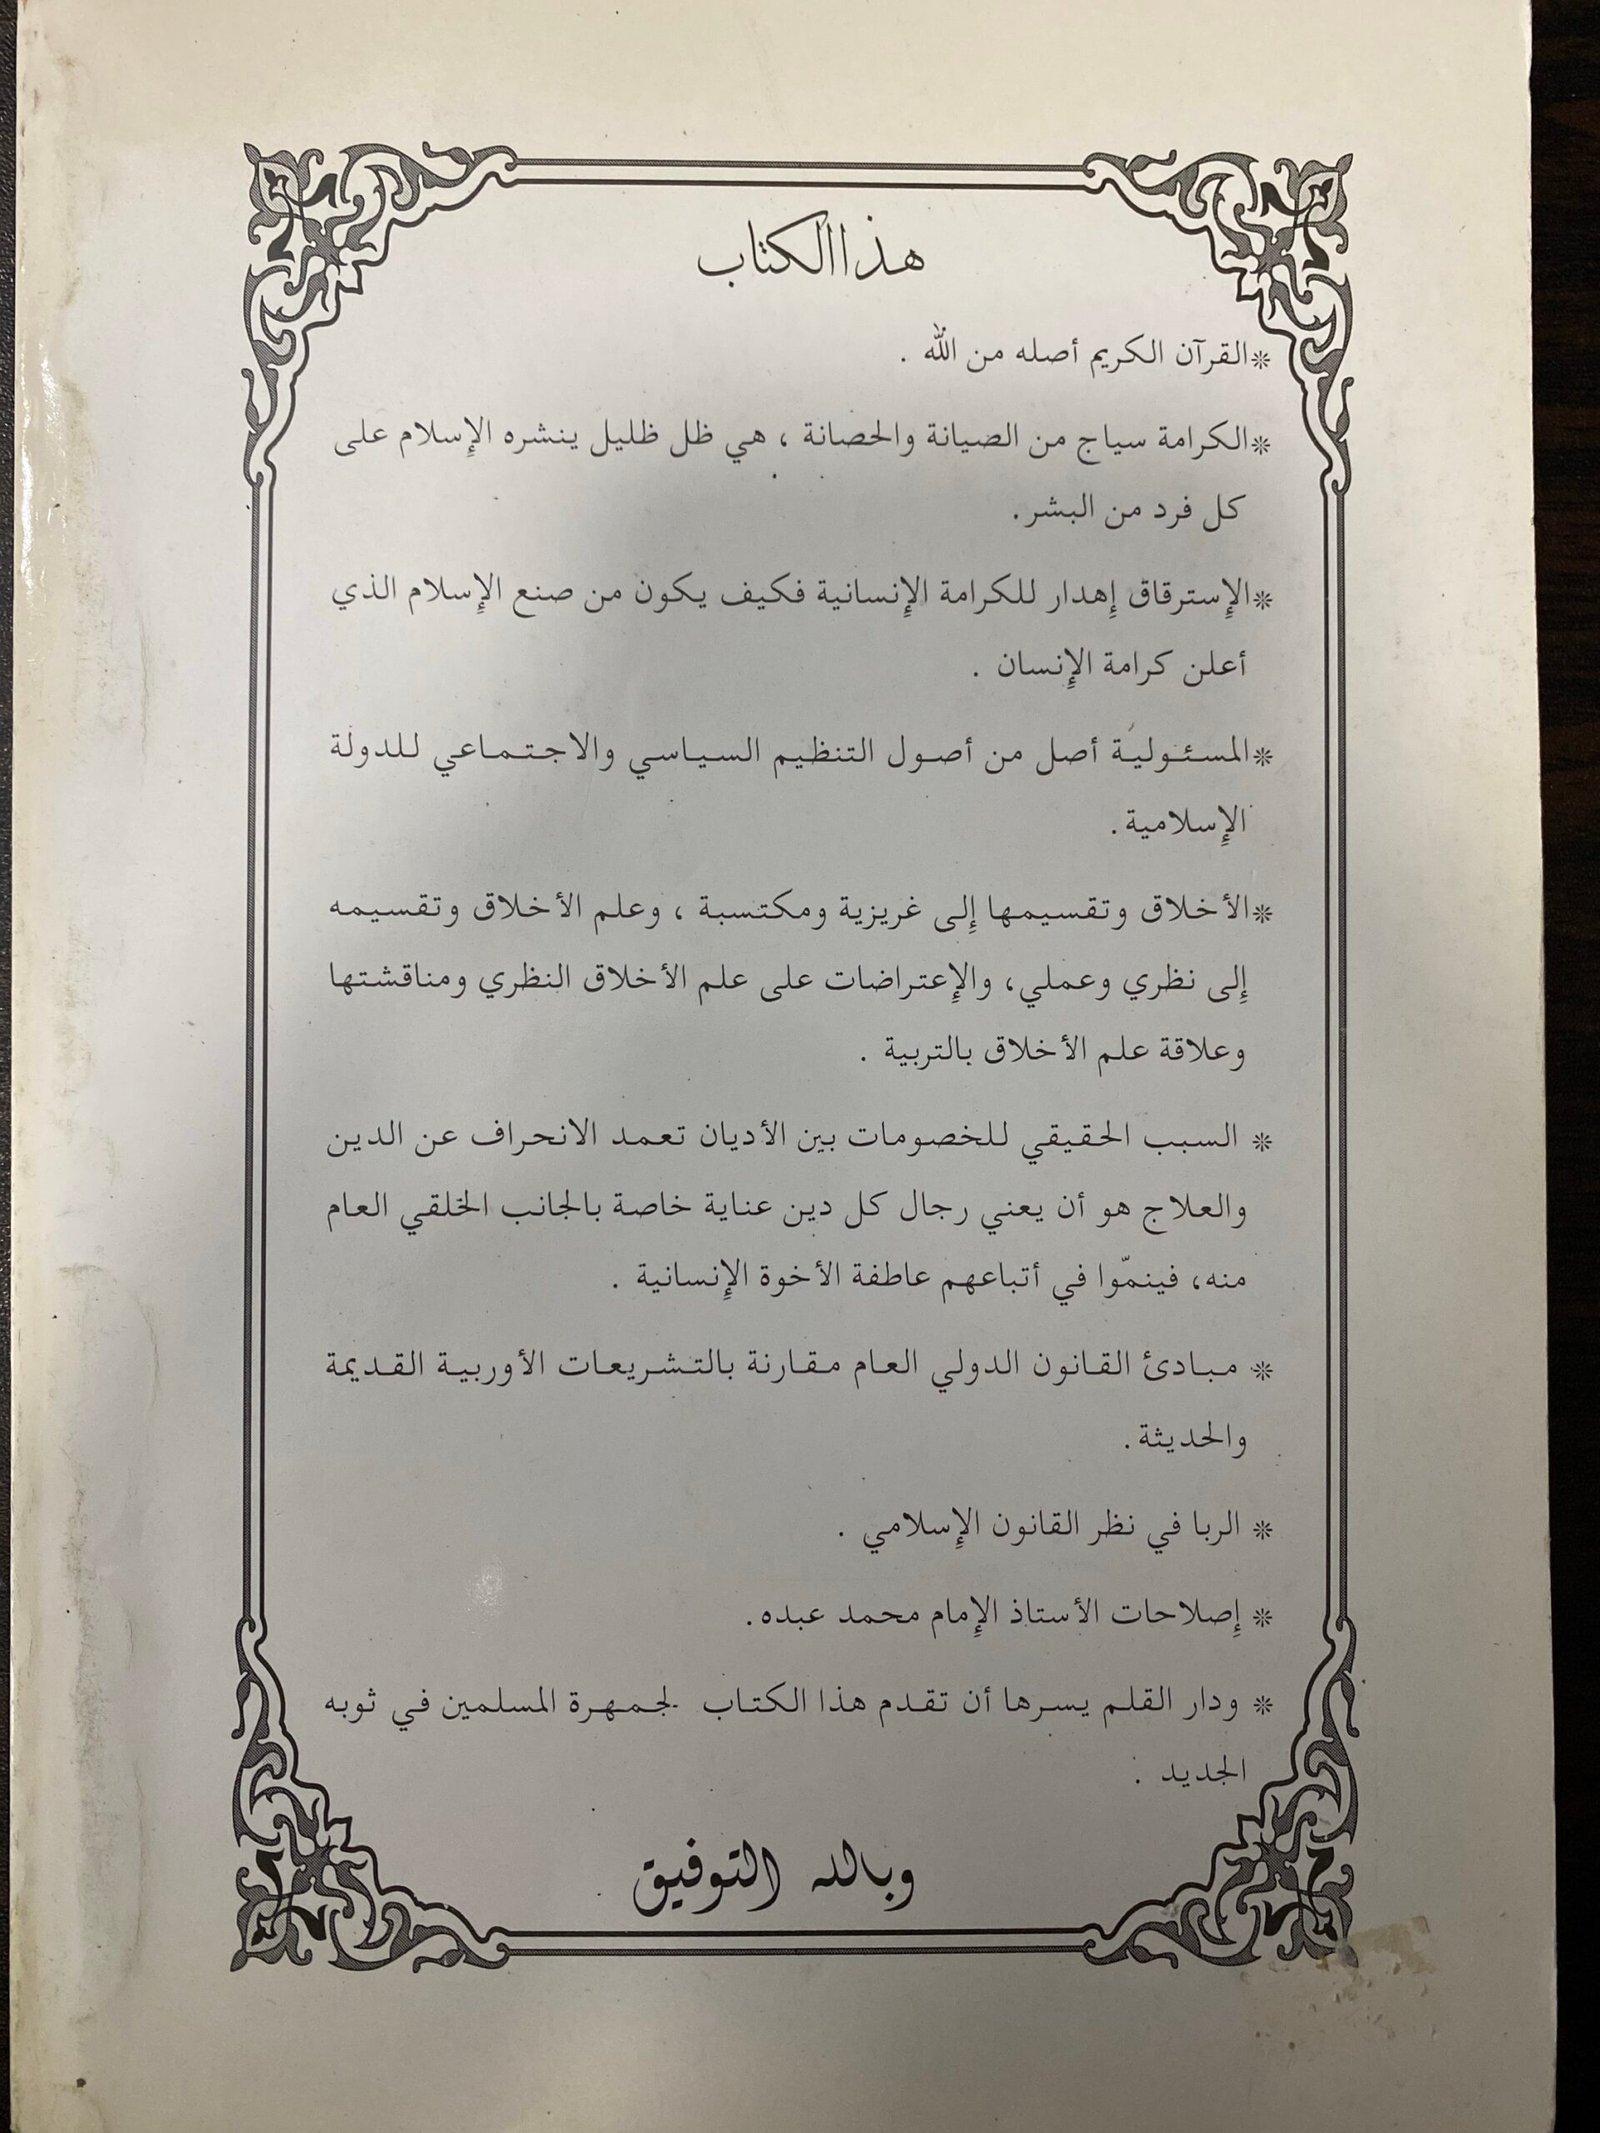 هذا الكتاب
* القرآن الكريم أصله من الله .
* الكرامة سياج من الصيانة والحصانة ، هي ظل ظليل ينشره الإسلام على
كل فرد من البشر .
* الإسترقاق إهدار للكرامة الإنسانية فكيف يكون من صنع الإسلام الذي
أعلن كرامة الإنسان .
* المسئولية أصل من أصول التنظيم السياسي والاجتماعي للدولة
الإسلامية .
* الأخلاق وتقسيمها إلى غريزية ومكتسبة ، وعلم الأخلاق وتقسيمه
إلى نظري وعملي ، والإعتراضات على علم الأخلاق النظري ومناقشتها
وعلاقة علم الأخلاق بالتربية .
* السبب الحقيقي للخصومات بين الأديان تعمد الانحراف عن الدين
والعلاج هو أن يعني رجال كل دين عناية خاصة بالجانب الخلقي العام
منه ، فينمّوا في أتباعهم عاطفة الأخوة الإنسانية .
* مبادئ القانون الدولي العام مقارنة بالتشريعات الأوربية القديمة
والحديثة .
* الربا في نظر القانون الإسلامي .
* إصلاحات الأستاذ الإمام محمد عبده .
* ودار القلم يسرها أن تقدم هذا الكتاب لجمهرة المسلمين في ثوبه
الجديد .
وبالله التوفيق